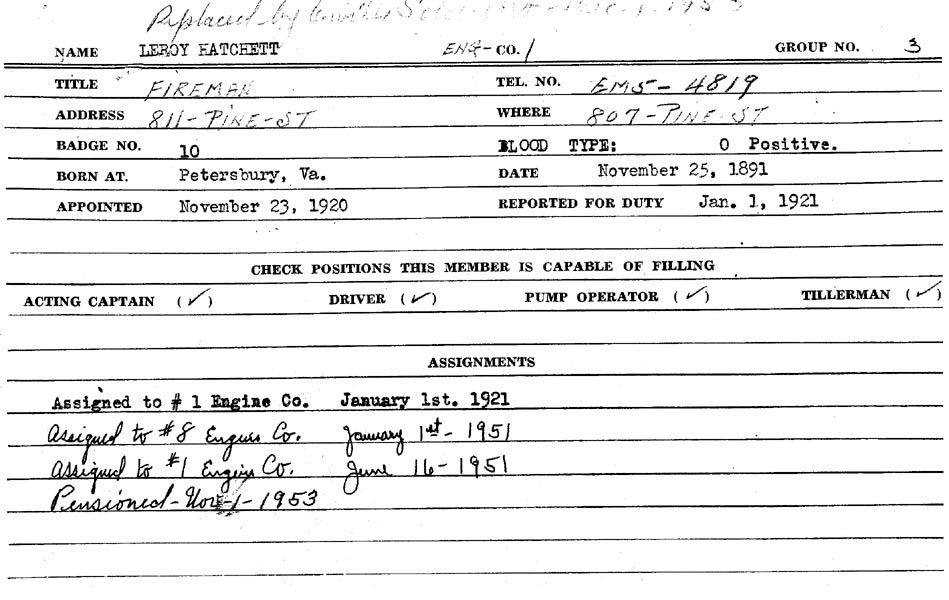 Replaced by
NAME LEROY HATCHETT ENG-CO. 1 GROUP NO. 3
TITLE FIREMAN TEL. NO. EM5-4819
ADDRESS 811-PINE-ST WHERE 807-PINE-ST
BADGE NO. 10 BLOOD TYPE: O Positive.
BORN AT. Petersbury, Va. DATE November 25, 1891
APPOINTED November 23, 1920 REPORTED FOR DUTY Jan. 1, 1921
CHECK POSITIONS THIS MEMBER IS CAPABLE OF FILLING
ACTING CAPTAIN (✓) DRIVER (✓) PUMP OPERATOR (✓) TILLERMAN (✓)
ASSIGNMENTS
Assigned to # 1 Engine Co. January 1st. 1921
Assigned to #8 Engine Co. January 1st-1951
Assigned to #1 Engine Co. June 16-1951
Pensioned-Nov-1-1953